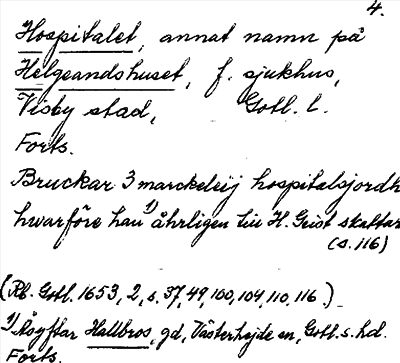 4.
Hospitalet, annat namn på
Helgeandshuset, f. sjukhus,
Visby stad, Gotl. l.
Forts.
Bruckar 3 marckeleij hospitalsjordh
hwarföre han 1) åhrligen till H. Geist skattar
(s. 116)
(Rb. Gotl. 1653, 2, s. 37, 49, 100, 104, 110, 116.)
1) Åsyftar Hallbros, gd, Västerhejde sn, Gotl. s. hd.
Forts.